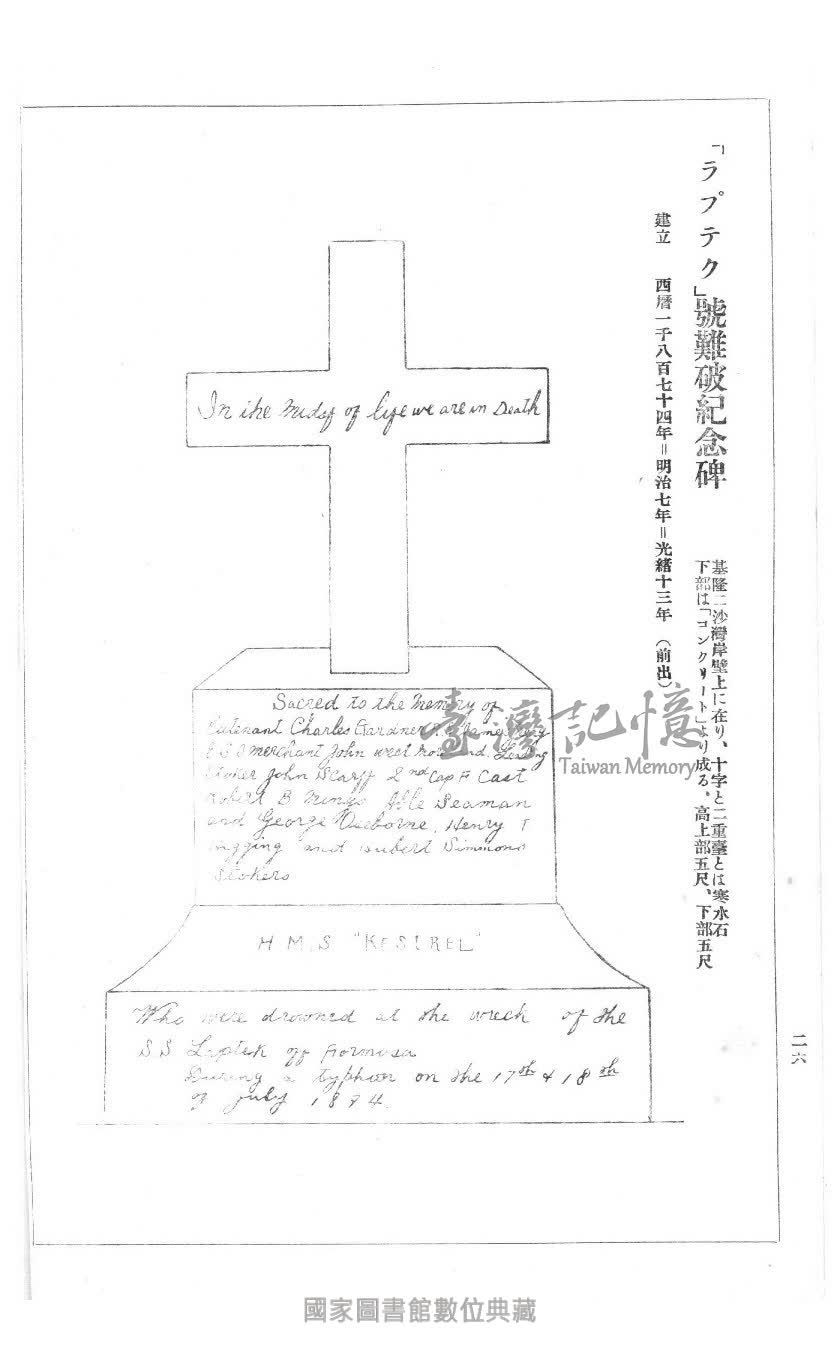 「ラプテク」號難破紀念碑
基隆二沙灣岸壁上に在り、十字と二重臺とは寒水石
下部は「コンクリート」より成る。高上部五尺、下部五尺
建立 西曆一千八百七十四年=明治七年=光緒十三年 (前出)
In the midst of life we are in Death
Sacred to the Memory of
Lieutenant Charles Gardner
merchant John West
Stoker John Scarff 2nd Cap F Cast
Robert B Able Seaman
and George Oseborne, Henry T
and Simmons
Stokers
H M S "KESTREL"
Who were drowned at the wreck of the
S S Laptek off Formosa
During a typhoon on the 17th & 18th
of July 1874
二六
臺灣記憶
Taiwan Memory
國家圖書館數位典藏